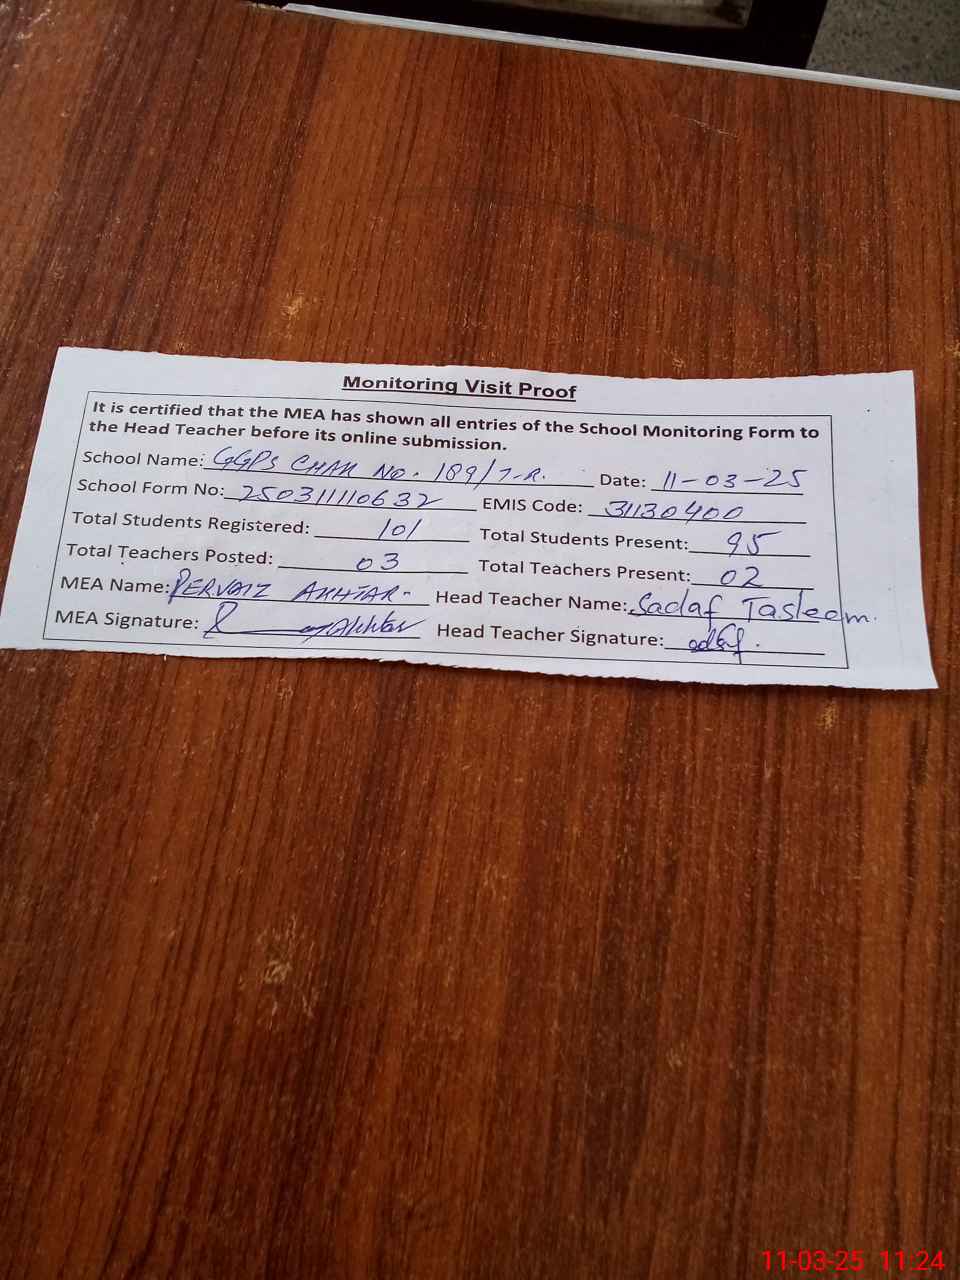 Monitoring Visit Proof
It is certified that the MEA has shown all entries of the School Monitoring Form to
the Head Teacher before its online submission.
School Name: GGPS CHAK NO. 189/7-R. Date: 11-03-25
School Form No: 250311110632 EMIS Code: 31130400
Total Students Registered: 101 Total Students Present: 95
Total Teachers Posted: 03 Total Teachers Present: 02
MEA Name: PERVAIZ AKHTAR- Head Teacher Name: Sadaf Tasleem.
MEA Signature: Akhtar Head Teacher Signature:
11-03-25 11:24